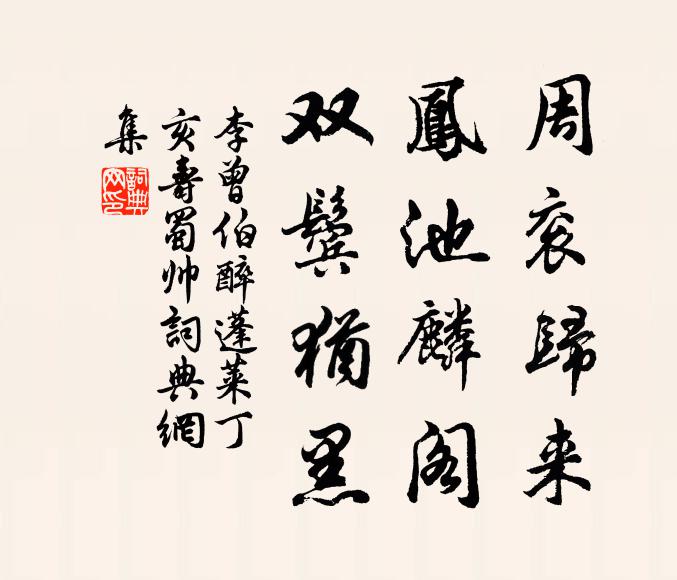 周衮歸来
鳳池麟阁
双鬓猶黑
李曾伯醉蓬莱丁
亥壽蜀帅詞典網
集
詞典
网印